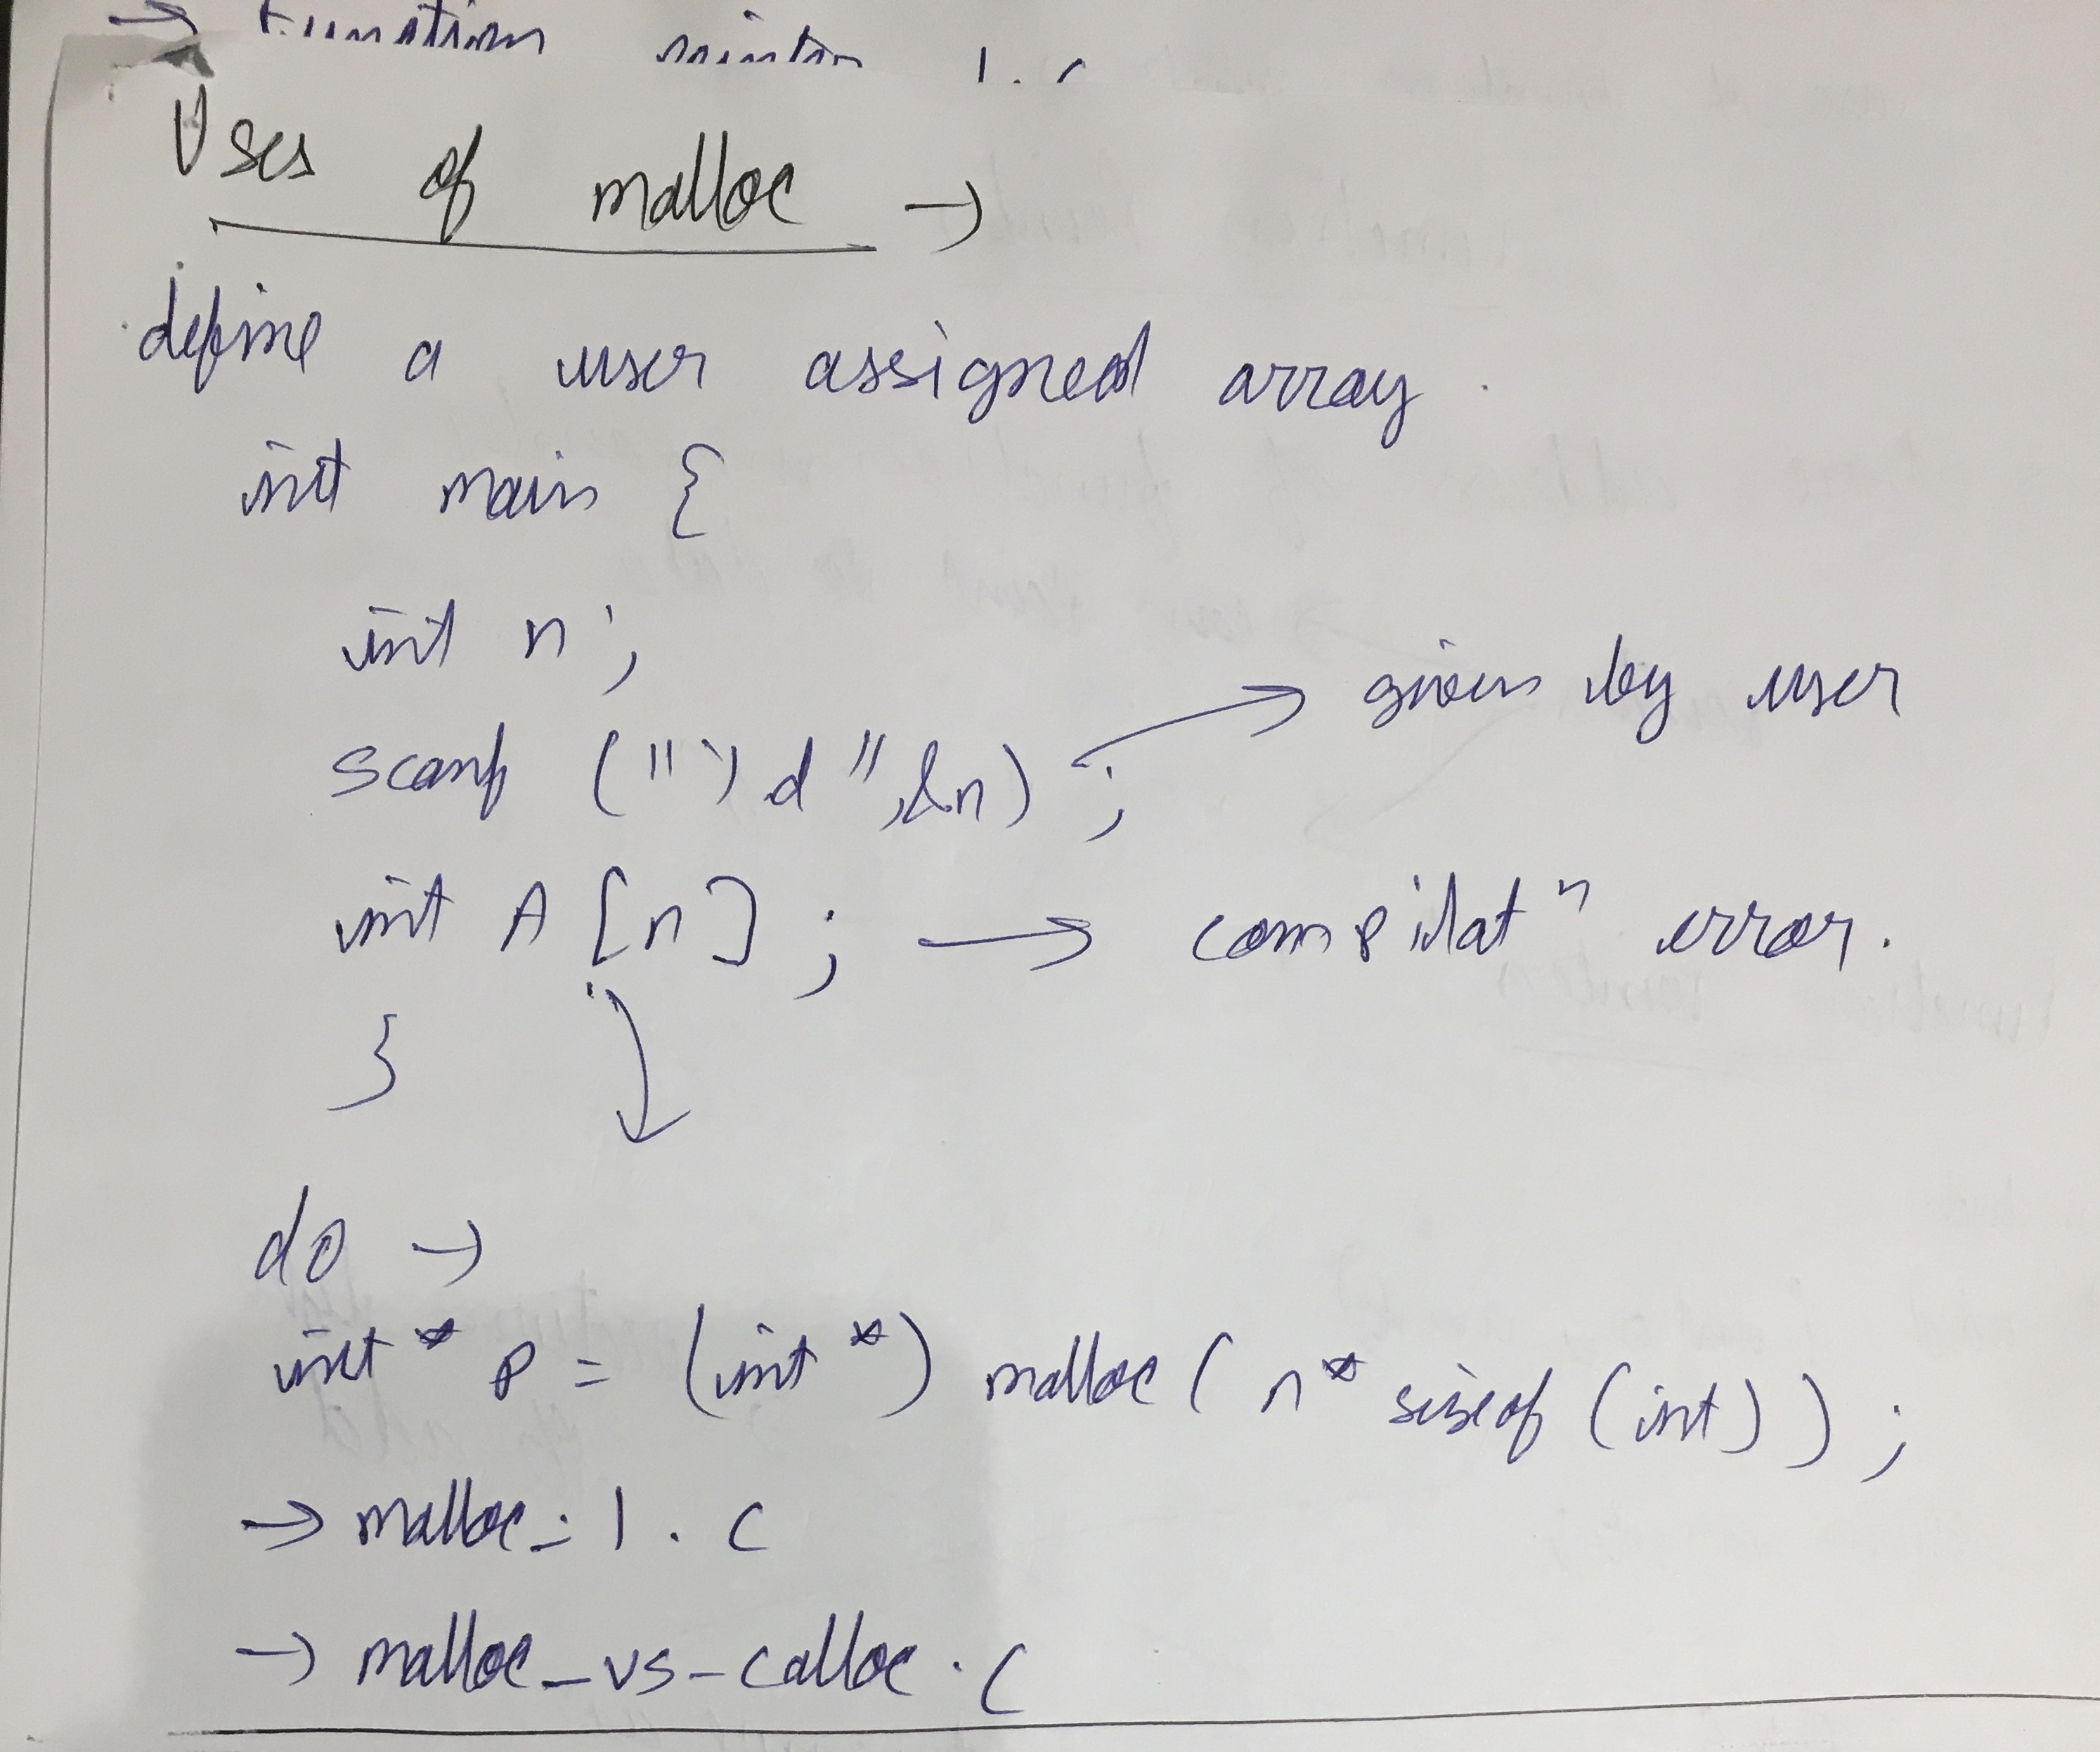 → function pointer 1.c
Uses of malloc →
define a user assigned array.
int main {
int n;
scanf ("%d", &n); → given by user
int A [n]; → compilatⁿ error.
}
do →
int* p = (int *) malloc ( n* sizeof (int));
→ malloc-1.c
→ malloc_vs-calloc.c